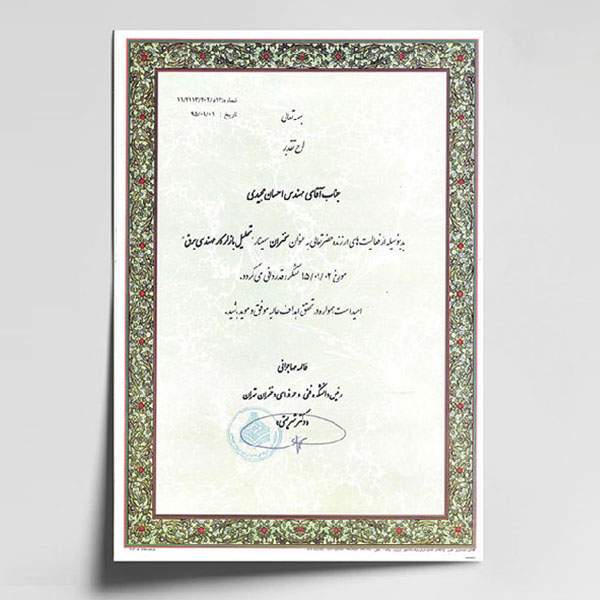 شماره: ۵۱۳د/۱۱/۲۱۱۳/۲۰۲
تاریخ : ۹۵/۰۱/۰۱
بسمه تعالی
لوح تقدیر
جناب آقای مهندس احسان مجیدی
بدینوسیله از فعالیت های ارزنده حضرتعالی به عنوان سخنران سمینار "تحلیل بازار کار مهندسی برق"
مورخ ۹۵/۰۱/۰۲ تشکر و قدردانی می گردد.
امید است همواره در تحقق اهداف عالیه موفق و موید باشید.
فاطمه مهاجرانی
رئیس دانشکده فنی و حرفه‌ای دختران تهران
«دکتر شریعتی»